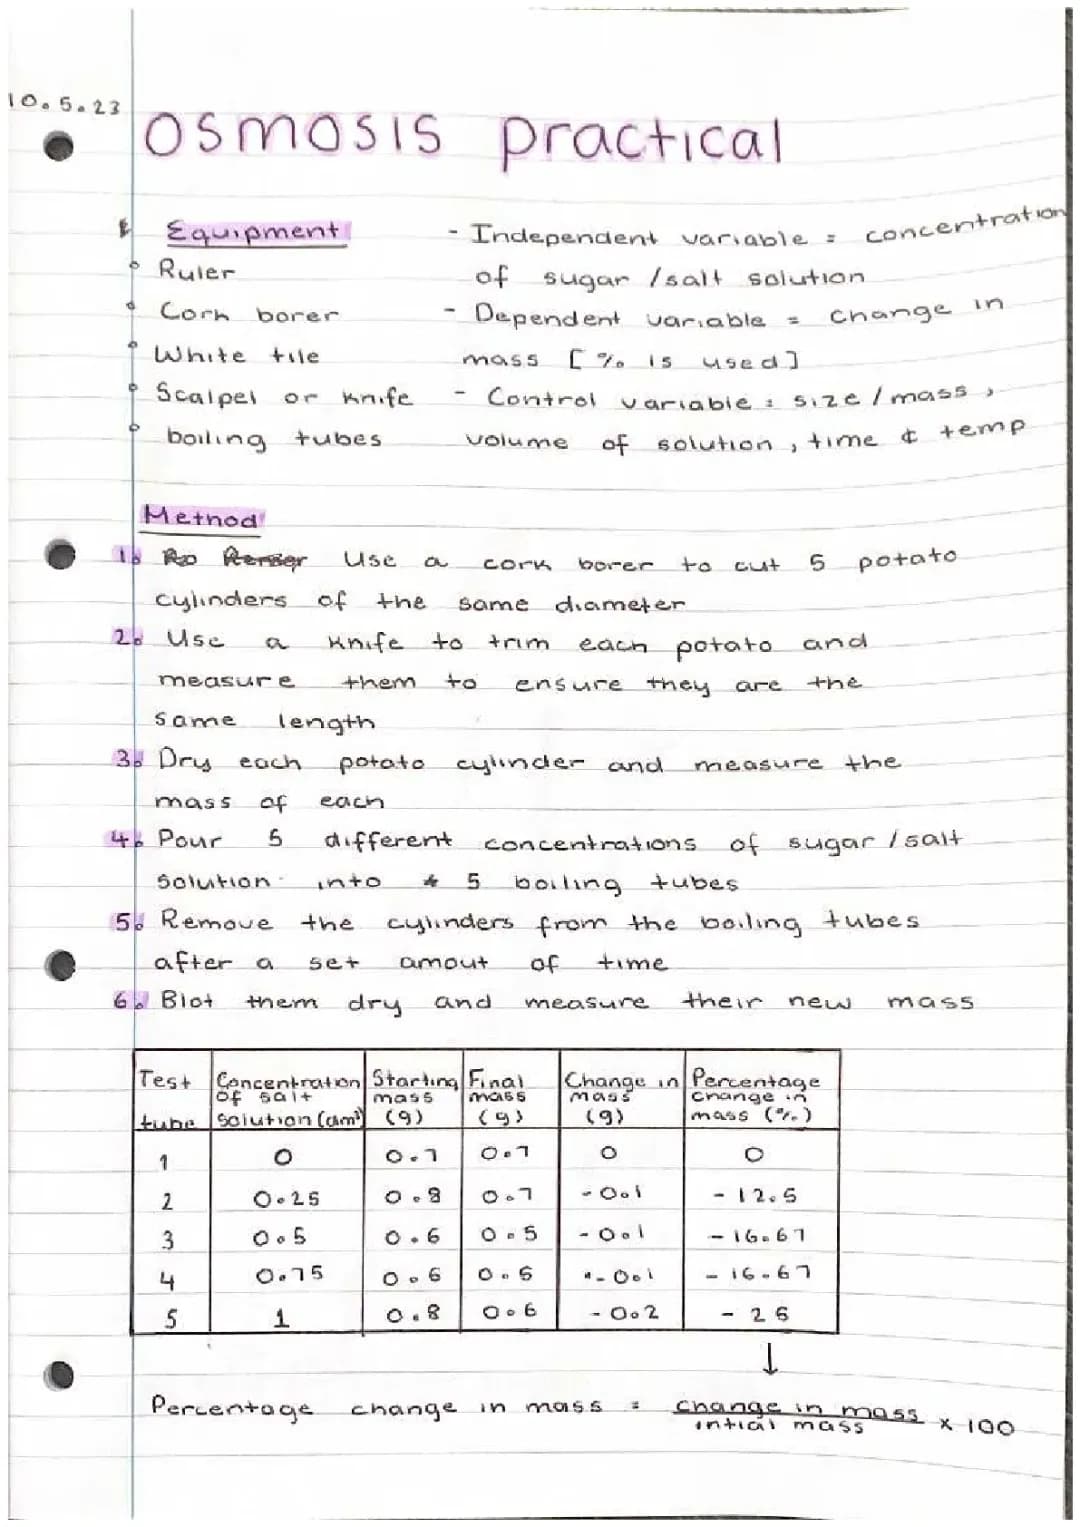 10.5.23
osmosis practical
Equipment
Ruler
Corn borer
White tile
Scalpel or knife
boiling tubes
- Independent variable = concentration
of sugar / salt solution
- Dependent variable = change in
mass [ % is used ]
- Control variable : size / mass ,
volume of solution , time & temp
Method
1. Use a cork borer to cut 5 potato
cylinders of the same diameter
2. Use a knife to trim each potato and
measure them to ensure they are the
same length
3. Dry each potato cylinder and measure the
mass of each
4. Pour 5 different concentrations of sugar / salt
solution into 5 boiling tubes
5. Remove the cylinders from the boiling tubes
after a set amout of time
6. Blot them dry and measure their new mass
Test tube | Concentration of salt solution (dm³) | Starting mass (g) | Final mass (g) | Change in mass (g) | Percentage change in mass (%)
1 | 0 | 0.7 | 0.7 | 0 | 0
2 | 0.25 | 0.8 | 0.7 | -0.1 | -12.5
3 | 0.5 | 0.6 | 0.5 | -0.1 | -16.67
4 | 0.75 | 0.6 | 0.5 | -0.1 | -16.67
5 | 1 | 0.8 | 0.6 | -0.2 | -25
↓
Percentage change in mass = change in mass
intial mass x 100